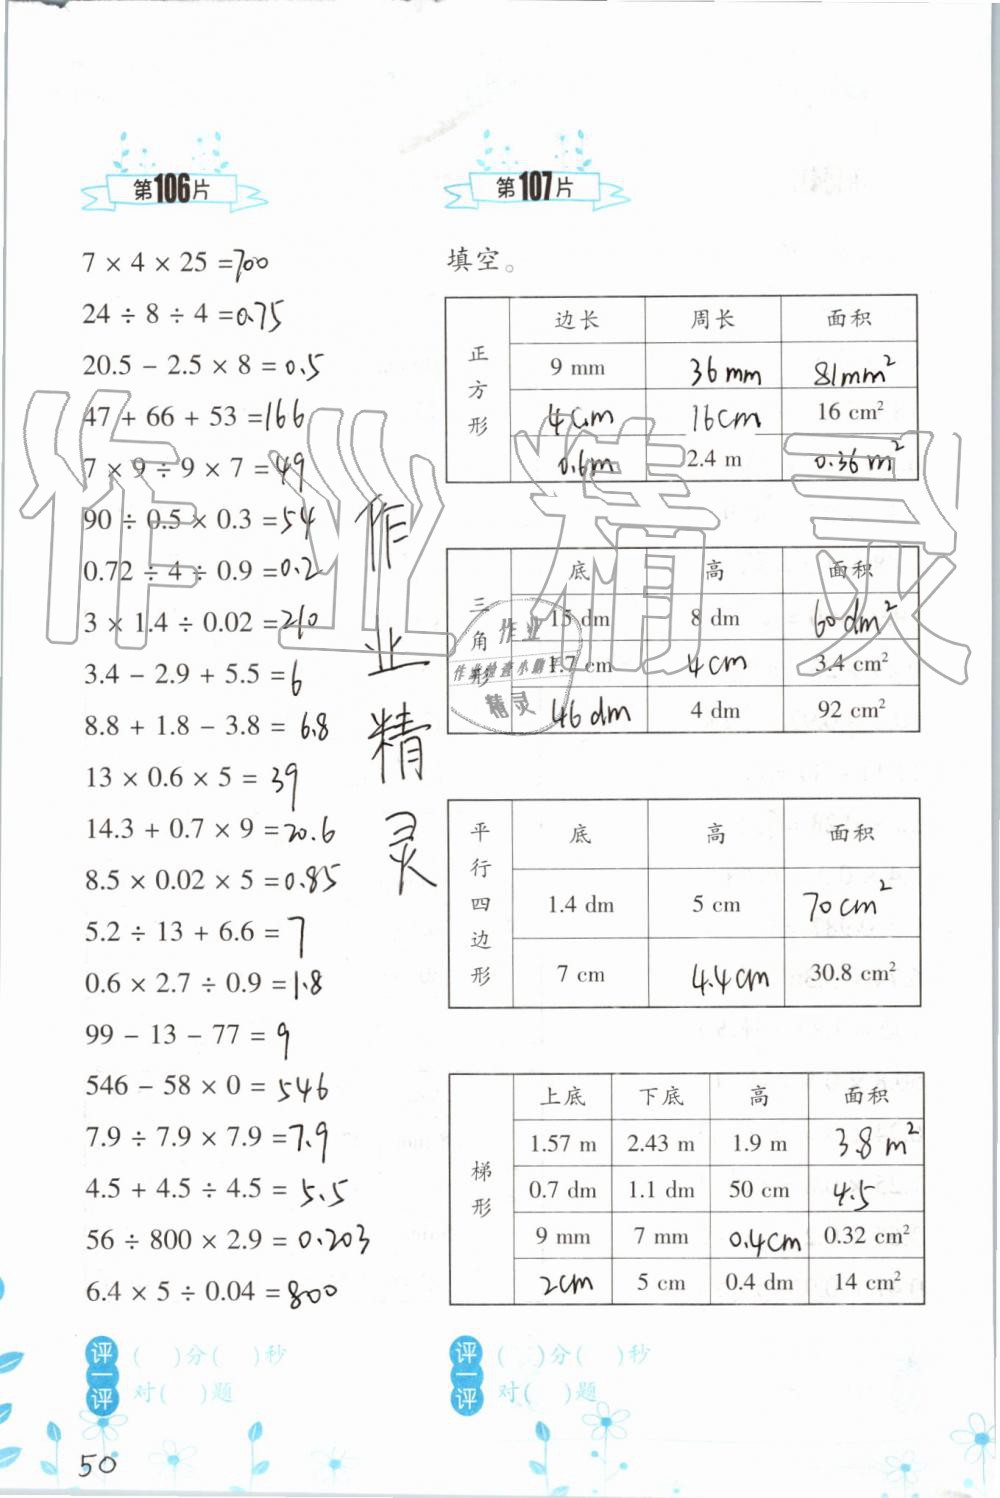 第106片
7 × 4 × 25 = 700
24 ÷ 8 ÷ 4 = 0.75
20.5 − 2.5 × 8 = 0.5
47 + 66 + 53 = 166
7 × 9 ÷ 9 × 7 = 49
90 ÷ 0.5 × 0.3 = 54
0.72 ÷ 4 ÷ 0.9 = 0.2
3 × 1.4 ÷ 0.02 = 210
3.4 − 2.9 + 5.5 = 6
8.8 + 1.8 − 3.8 = 6.8
13 × 0.6 × 5 = 39
14.3 + 0.7 × 9 = 20.6
8.5 × 0.02 × 5 = 0.85
5.2 ÷ 13 + 6.6 = 7
0.6 × 2.7 ÷ 0.9 = 1.8
99 − 13 − 77 = 9
546 − 58 × 0 = 546
7.9 ÷ 7.9 × 7.9 = 7.9
4.5 + 4.5 ÷ 4.5 = 5.5
56 ÷ 800 × 2.9 = 0.203
6.4 × 5 ÷ 0.04 = 800
评一评
( )分( )秒
对( )题
50
作业精灵
作业精灵
第107片
填空。
正方形
边长 周长 面积
9 mm 36mm 81mm²
4cm 16cm 16 cm²
0.6m 2.4 m 0.36m²
三角形
底 高 面积
15 dm 8 dm 60dm²
1.7 cm 4cm 3.4 cm²
46dm 4 dm 92 cm²
作业
作业检查小助手
精灵
平行四边形
底 高 面积
1.4 dm 5 cm 70cm²
7 cm 4.4cm 30.8 cm²
梯形
上底 下底 高 面积
1.57 m 2.43 m 1.9 m 3.8m²
0.7 dm 1.1 dm 50 cm 4.5
9 mm 7 mm 0.4cm 0.32 cm²
2cm 5 cm 0.4 dm 14 cm²
评一评
( )分( )秒
对( )题